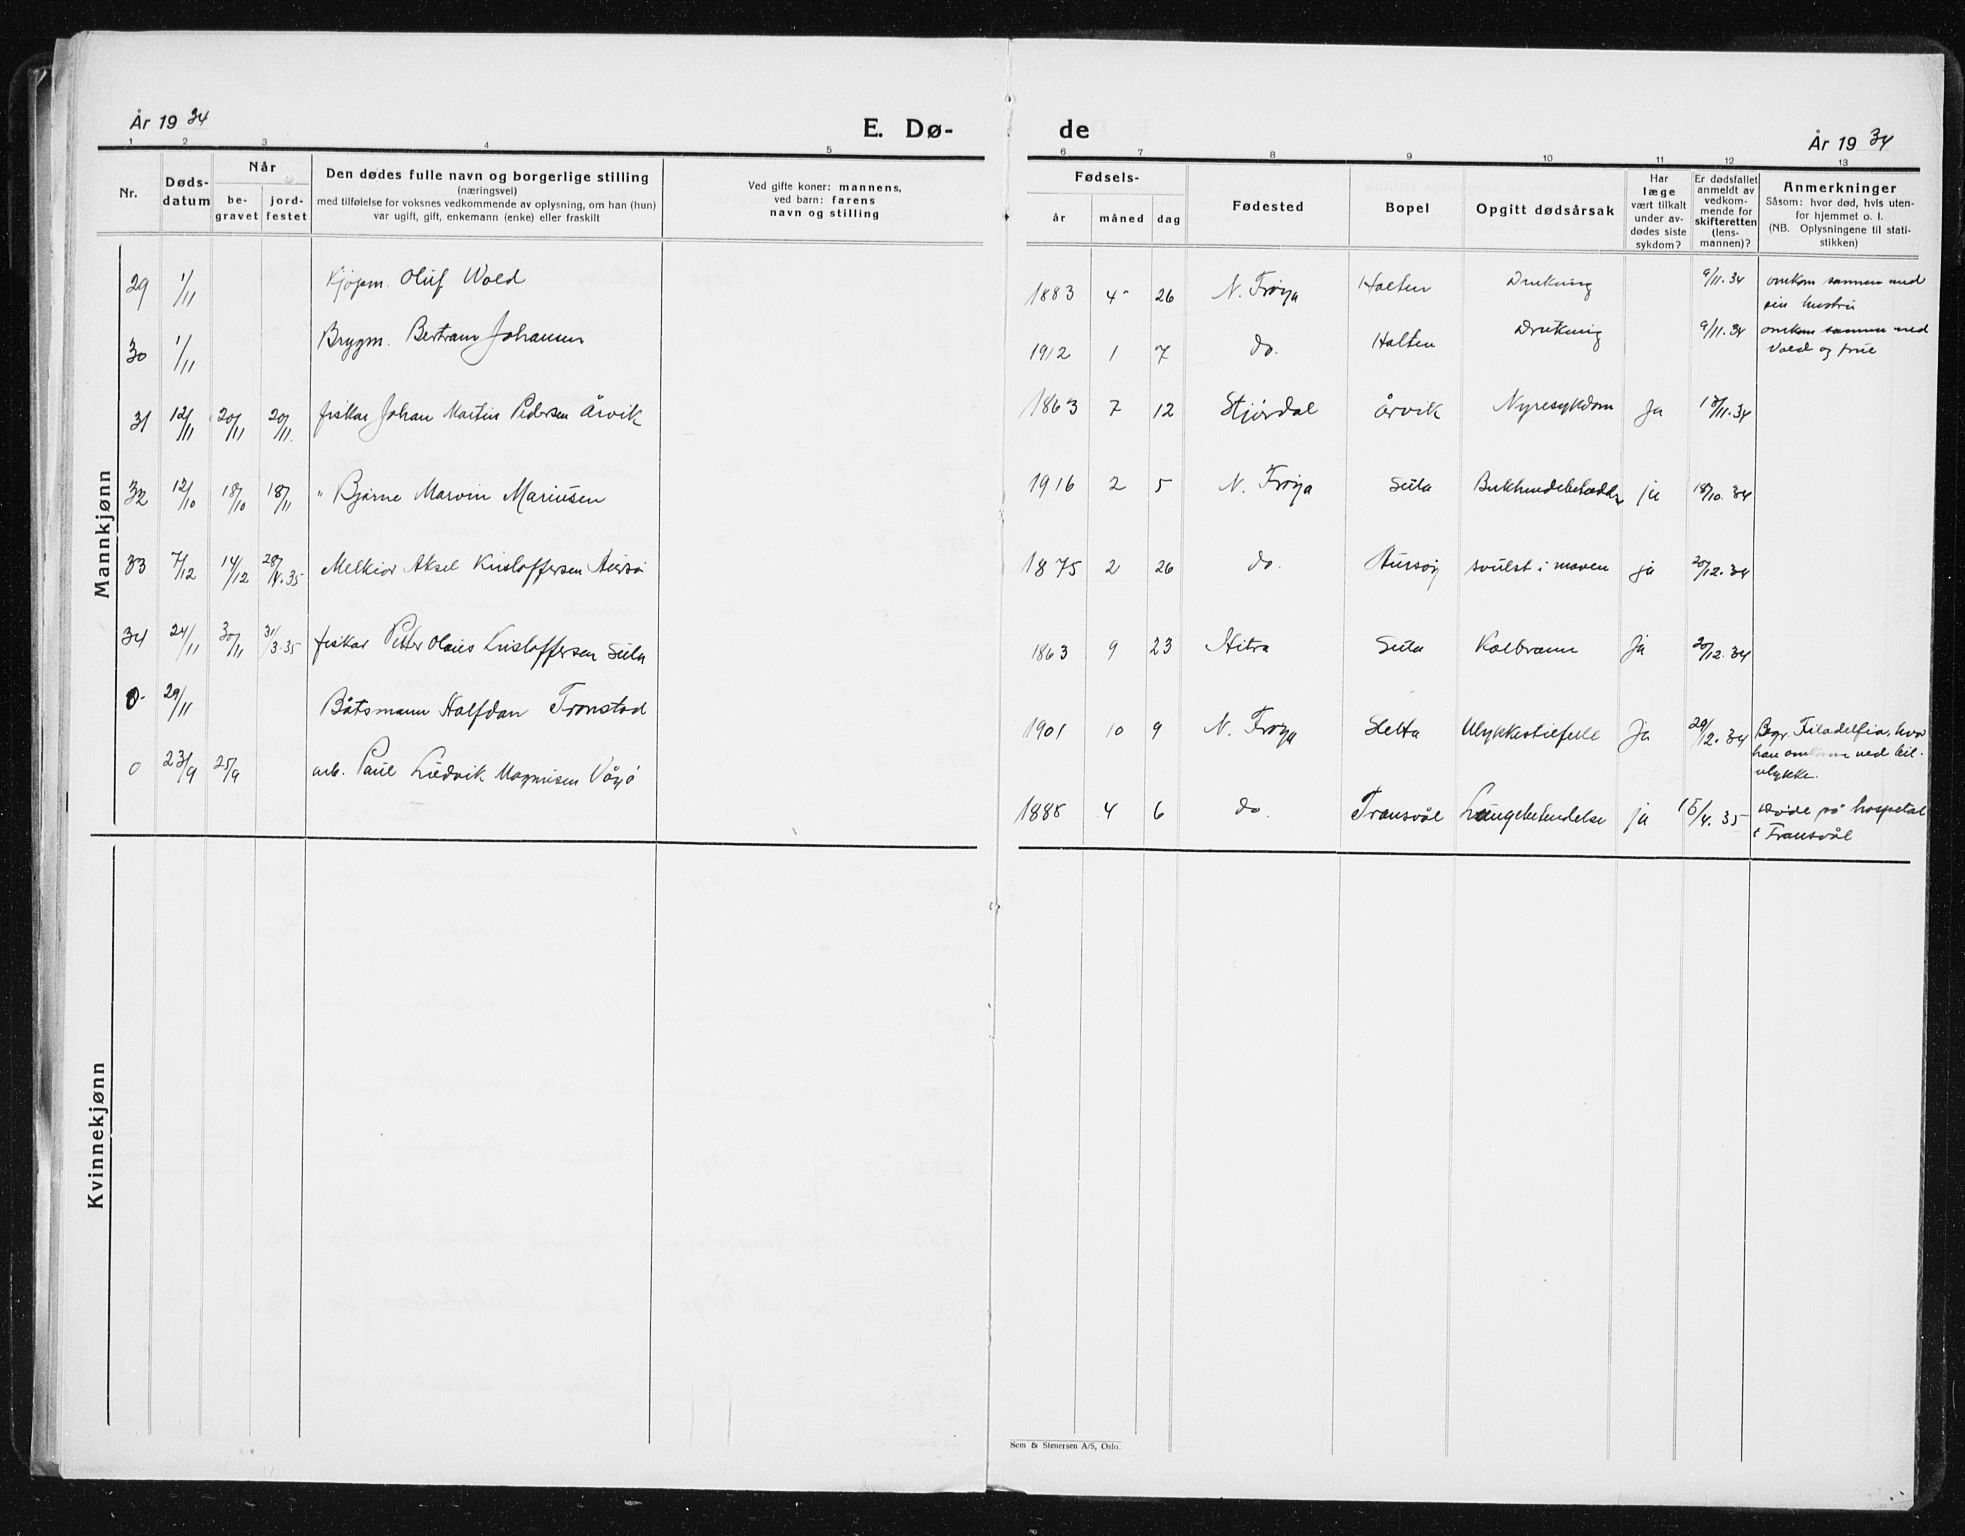 År 1934
E. Dø-
de
År 1934
1 2 3 4 5
6 7 8 9 10 11 12 13
Nr.
Døds-
datum
Når
be-
gravet
jord-
festet
Den dødes fulle navn og borgerlige stilling
(næringsvei)
med tilføielse for voksnes vedkommende av oplysning, om han (hun)
var ugift, gift, enkemann (enke) eller fraskilt
Ved gifte koner: mannens,
ved barn: farens
navn og stilling
Fødsels-
år måned dag
Fødested
Bopel
Opgitt dødsårsak
Har
læge
vært tilkalt
under av-
dødes siste
sykdom?
Er dødsfallet
anmeldt av
vedkom-
mende for
skifteretten
(lens-
mannen)?
Anmerkninger
Såsom: hvor død, hvis uten-
for hjemmet o. l.
(NB. Oplysningene til stati-
stikken)
Mannkjønn
29 1/11 Kjøpm. Oluf Wold 1883 4 26 N. Frøya Halten Drukning 9/11.34 omkom sammen med
sin hustru
30 1/11 Brygm. Bertram Johansen 1912 1 7 do. Halten Drukning 9/11.34 omkom sammen med
Vold og frue
31 12/11 20/11 20/11. fiskar Johan Martin Pedersen Årvik 1863 7 12 Stjørdal Årvik Nyresykdom Ja 13/11.34
32 12/10 18/10 18/11 " Bjarne Marvin Mariusen 1916 2 5 N. Frøya Sula ja 18/10.34
33 7/12 14/12 28/4.35 Melkior Aksel Kristoffersen 1875 2 26 do. svulst i maven ja 20/12.34
34 24/11 30/11 31/3.35 fiskar Petter Olaus Kristoffersen Sula 1863 9 23 Hitra Sula Kolbrann Ja 20/12.34
0 29/11 Båtsmann Halfdan Tronstad 1901 10 9 N. Frøya Sletta Ulykkestilfelle Ja 29/12.34 Begr. Filadelfia, hvor
han omkom ved bil-
ulykke.
0 23/9 25/9 arb. Paul Ludvik Magnusen Vågø 1888 4 6 do. Transvål Lungebetendelse ja 15/4.35 døde på hospetal
i Transvål
Kvinnekjønn
Sem & Stenersen A/S, Oslo.